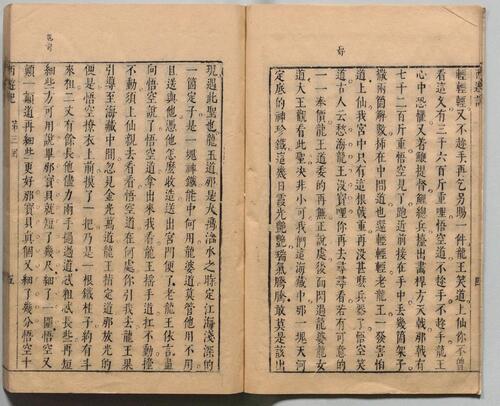 輕輕輕又不趁手再乞另賜一件龍王笑道上仙你不曾
看這叉有三千六百斤重哩悟空道不趁手不趁手龍王
心中恐懼又著鯾提督鯉總兵擡出畫桿方天戟那戟有
七千二百斤重悟空見了跑近前接在手中丟幾箇架子
撒兩箇解數插在中間道也還輕輕輕老龍王一發害怕
道上仙我宮中只有這根戟重再沒甚麼兵器了悟空笑
道古人云愁海龍王沒寶哩你再去尋尋看若有可意的
一一奉價龍王道委的再無正說處後面閃過龍婆龍女
道大王觀看此聖決非小可我們這海藏中那一塊天河
定底的神珍鐵這幾日霞光艷艷瑞氣騰騰敢莫是該出
現遇此聖也龍王道那是大禹治水之時定江海淺深的
一箇定子是一塊神鐵能中何用龍婆道莫管他用不用
且送與他憑他怎麼改造送出宮門便了老龍王依言盡
向悟空說了悟空道拿出來我看龍王搖手道扛不動擡
不動須上仙親去看看悟空道在何處你引我去龍王果
引導至海藏中間忽見金光萬道龍王指定道那放光的
便是悟空撩衣上前摸了一把乃是一根鐵柱子約有斗
來粗二丈有餘長他儘力兩手撾過道忒粗忒長些再短
細些方可用說畢那寶貝就短了幾尺細了一圍悟空又
顛一顛道再細些更好那寶貝真箇又細了幾分悟空十
西遊記 第三回 五